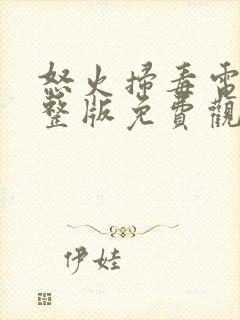 怒火掃毒電
整版免費觀
伊娃